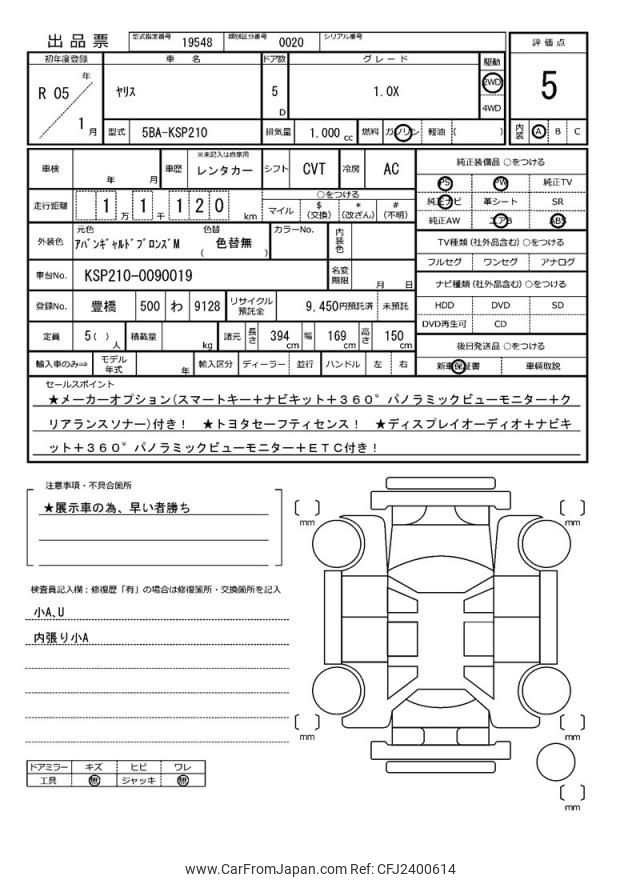 出品票 型式指定番号 19548 類別区分番号 0020 シリアル番号
評価点
5
内装 A B C
初年度登録 車名 ドア数 グレード 駆動
R 05 年 1 月 ヤリス 5 D 1.0X 2WD 4WD
型式 5BA-KSP210 排気量 1.000 cc 燃料 ガソリン 軽油 ( )
車検 年 月 車歴 ※未記入は自家用 レンタカー シフト CVT 冷房 AC
走行距離 1 万 1 千 1 2 0 km ○をつける マイル $ (交換) * (改ざん) # (不明)
外装色 元色 アバンギャルドブロンズM 色替 ( 色替無 ) カラーNo. 内装色
車台No. KSP210-0090019 名変期限 月 日
登録No. 豊橋 500 わ 9128 リサイクル預託金 9,450円預託済 未預託
定員 5( ) 人 積載量 kg 諸元 長さ 394 cm 幅 169 cm 高さ 150 cm
輸入車のみ⇒ モデル年式 年 輸入区分 ディーラー 並行 ハンドル 左 右
純正装備品 ○をつける
PS PW 純正TV
純正ナビ 革シート SR
純正AW エアB ABS
TV種類 (社外品含む) ○をつける
フルセグ ワンセグ アナログ
ナビ種類 (社外品含む) ○をつける
HDD DVD SD
DVD再生可 CD
後日発送品 ○をつける
新車保証書 車輌取説
セールスポイント
★メーカーオプション(スマートキー＋ナビキット＋３６０°パノラミックビューモニター＋ク
リアランスソナー)付き！ ★トヨタセーフティセンス！ ★ディスプレイオーディオ＋ナビキ
ット＋３６０°パノラミックビューモニター＋ＥＴＣ付き！
注意事項・不具合箇所
★展示車の為、早い者勝ち
検査員記入欄：修復歴「有」の場合は修復箇所・交換箇所を記入
小A､U
内張り小A
ドアミラー キズ ヒビ ワレ
工具 無 ジャッキ 無
[ ] mm
[ ] mm
[ ] mm
[ ] mm
[ ] mm
www.CarFromJapan.com Ref: CFJ2400614